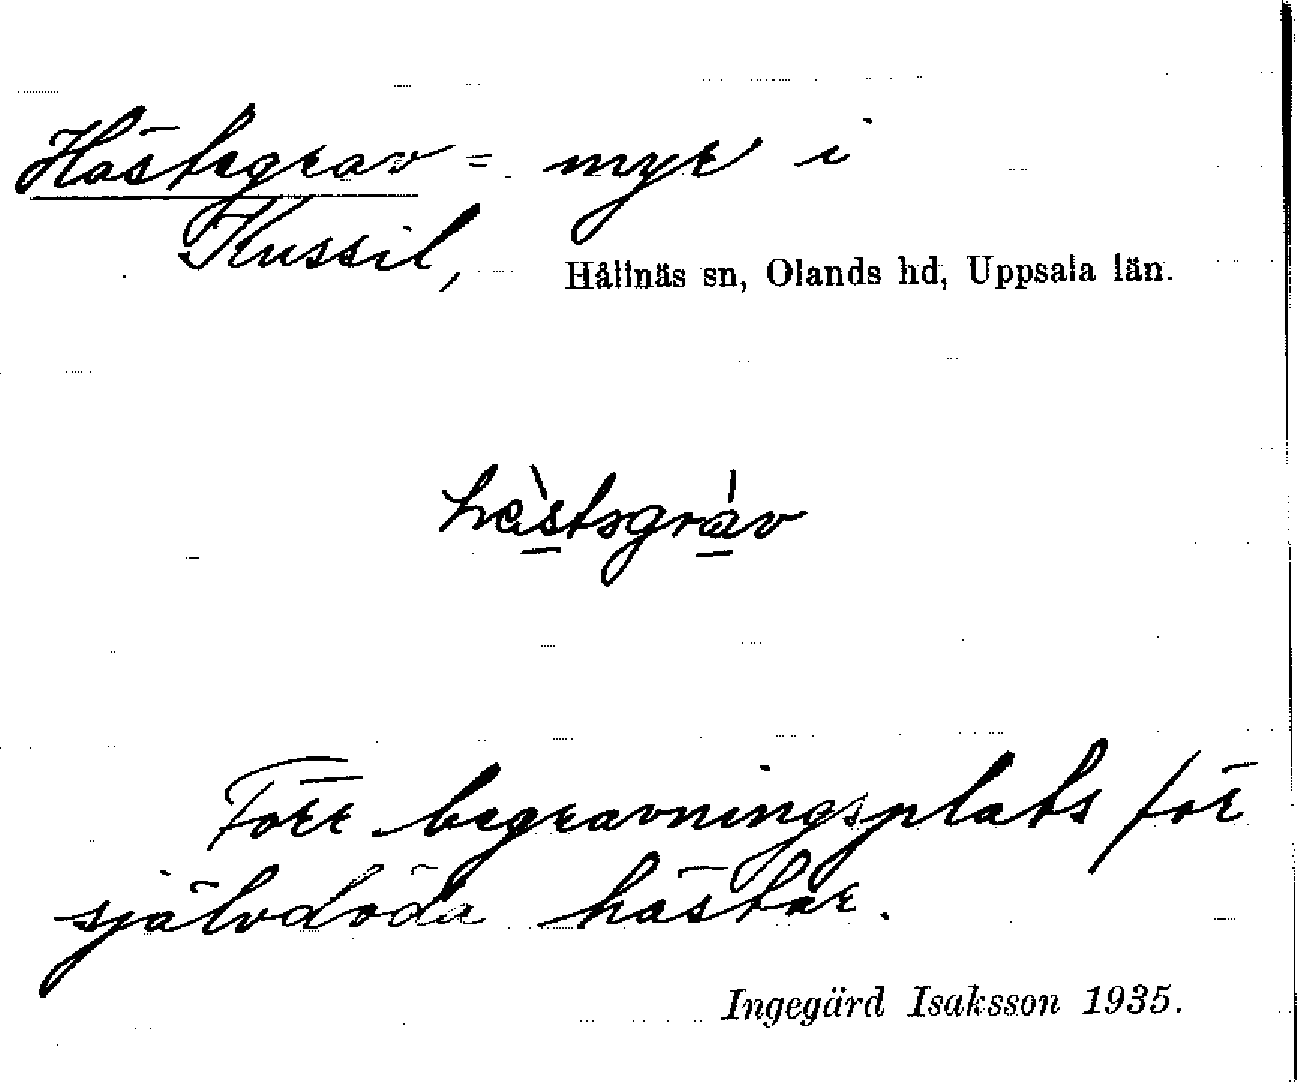 Hästsgrav = myr i
Kussil, Hållnäs sn, Olands hd, Uppsala län.
hèstsgráv
Förr begravningsplats för
självdöda hästar.
Ingegärd Isaksson 1935.